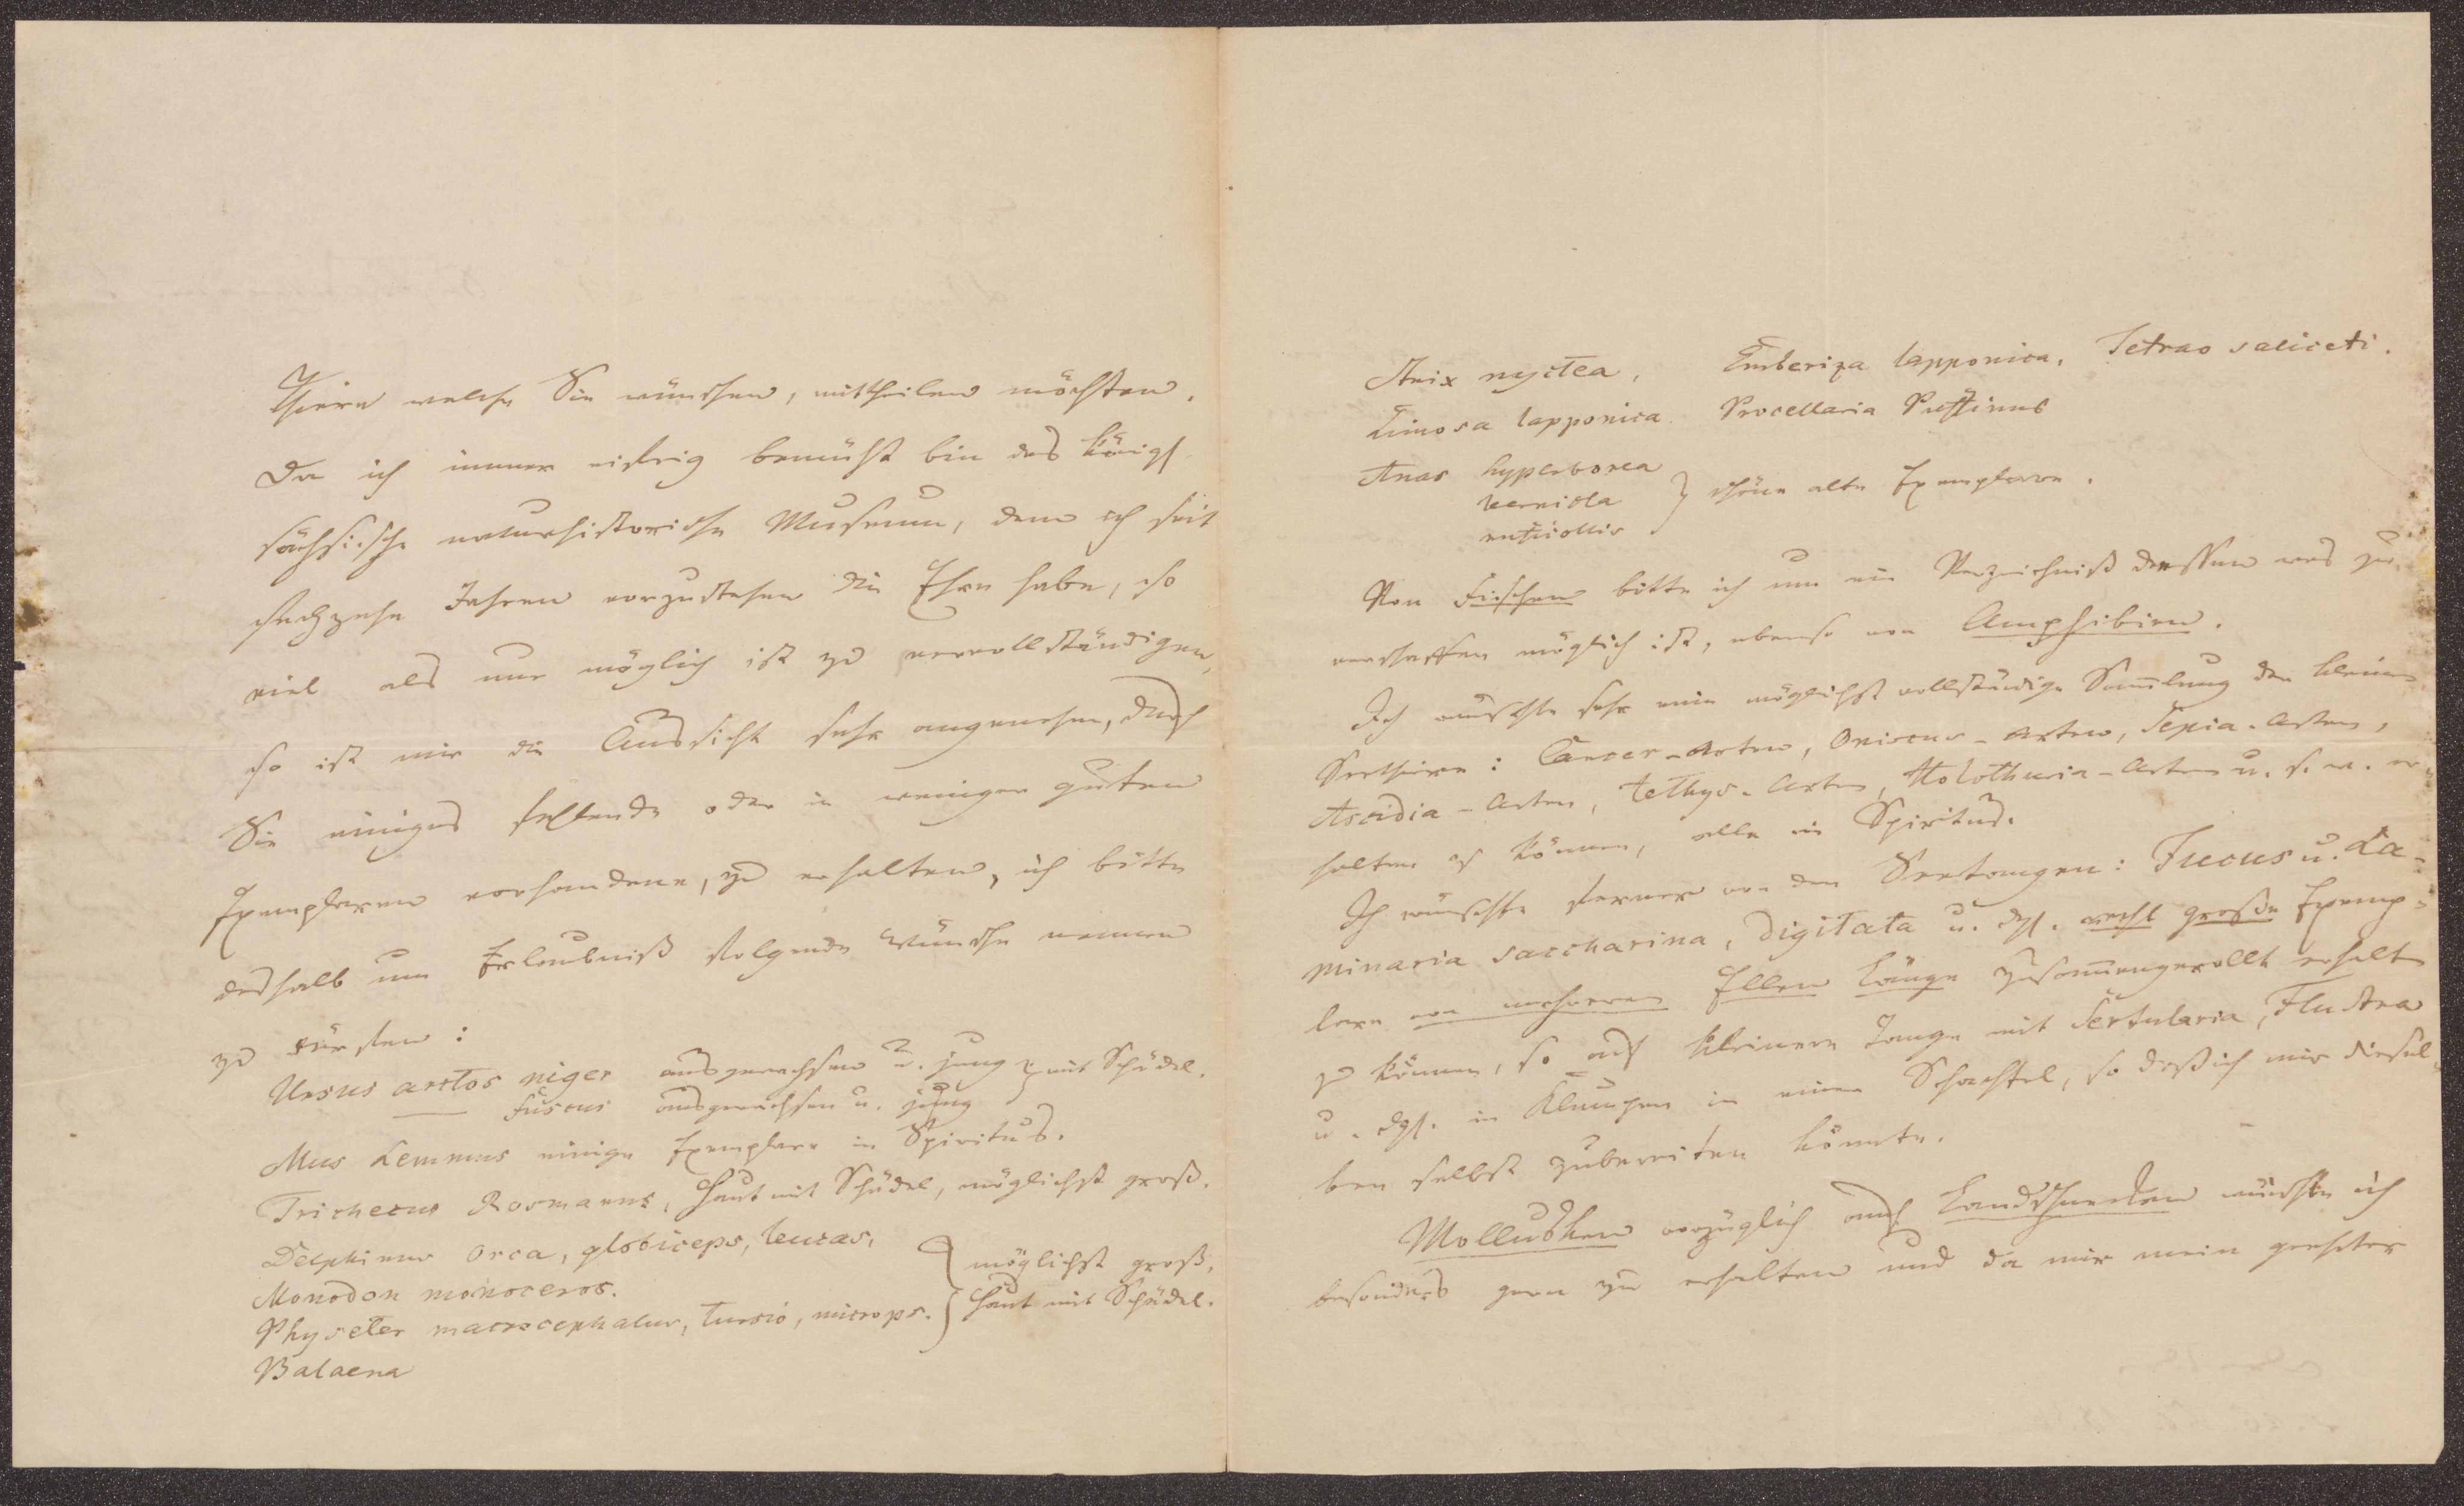 Thiere welche Sie wünschen, mittheilen möchten.
Da ich immer eifrig bemüht bin das Königl
sächsische naturhistorische Museum, dem ich seit
sechzehn Jahren vorzustehen die Ehre habe, so
viel als nur möglich ist zu vervollständigen,
so ist mir die Aussicht sehr angenehm, durch
Sie einiges fehlende oder in weniger guten
Exemplaren vorhandene, zu erhalten, ich bitte
deshalb um Erlaubniß folgende Wünsche nennen
zu dürfen:
Ursus arctos niger ausgewachsen u. jung } mit Schädel.
— fuscus ausgewachsen u. jung
Mus Lemmus einige Exemplare in Spiritus.
Trichecus Rosmarus, Haut mit Schädel, möglichst groß.
Delphinus Orca, globiceps, leucas,
Monodon monoceros.
Physeter macrocephalus, Tursio, microps.
Balaena
} möglichst groß,
Haut mit Schädel.
Strix nyctea, Emberiza lapponica, Tetrao saliceti.
Limosa lapponica. Procellaria Puffinus
Anas hyperborea
bernicla
ruficollis
} schöne alte Exemplare.
Von Fischen bitte ich um ein Verzeichniß dessen was zu
verschaffen möglich ist, ebenso von Amphibien.
Ich wünschte sehr eine möglichst vollständige Sam̄lung der kleinen
Seethiere: Cancer-Arten, Oniscus-Arten, Sepia-Arten,
Ascidia-Arten, Tethys-Arten, Holothuria-Arten u. s. w. er-
halten zu können, alle in Spiritus.
Ich wünschte ferner von den Seetangen: Fucus u. La-
minaria saccharina, digitata u. dgl. recht große Exemp-
lare von mehreren Ellen Länge zusam̄engerollt erhalten
zu können, so auch kleinere Tange mit Sertularia, Flustra
u. dgl. in Klumpen in einer Schachtel, so daß ich mir diesel-
ben selbst zubereiten könnte.
Mollusken vorzüglich auch Landschnecken wünschte ich
besonders gern zu erhalten und da mir mein geehrter